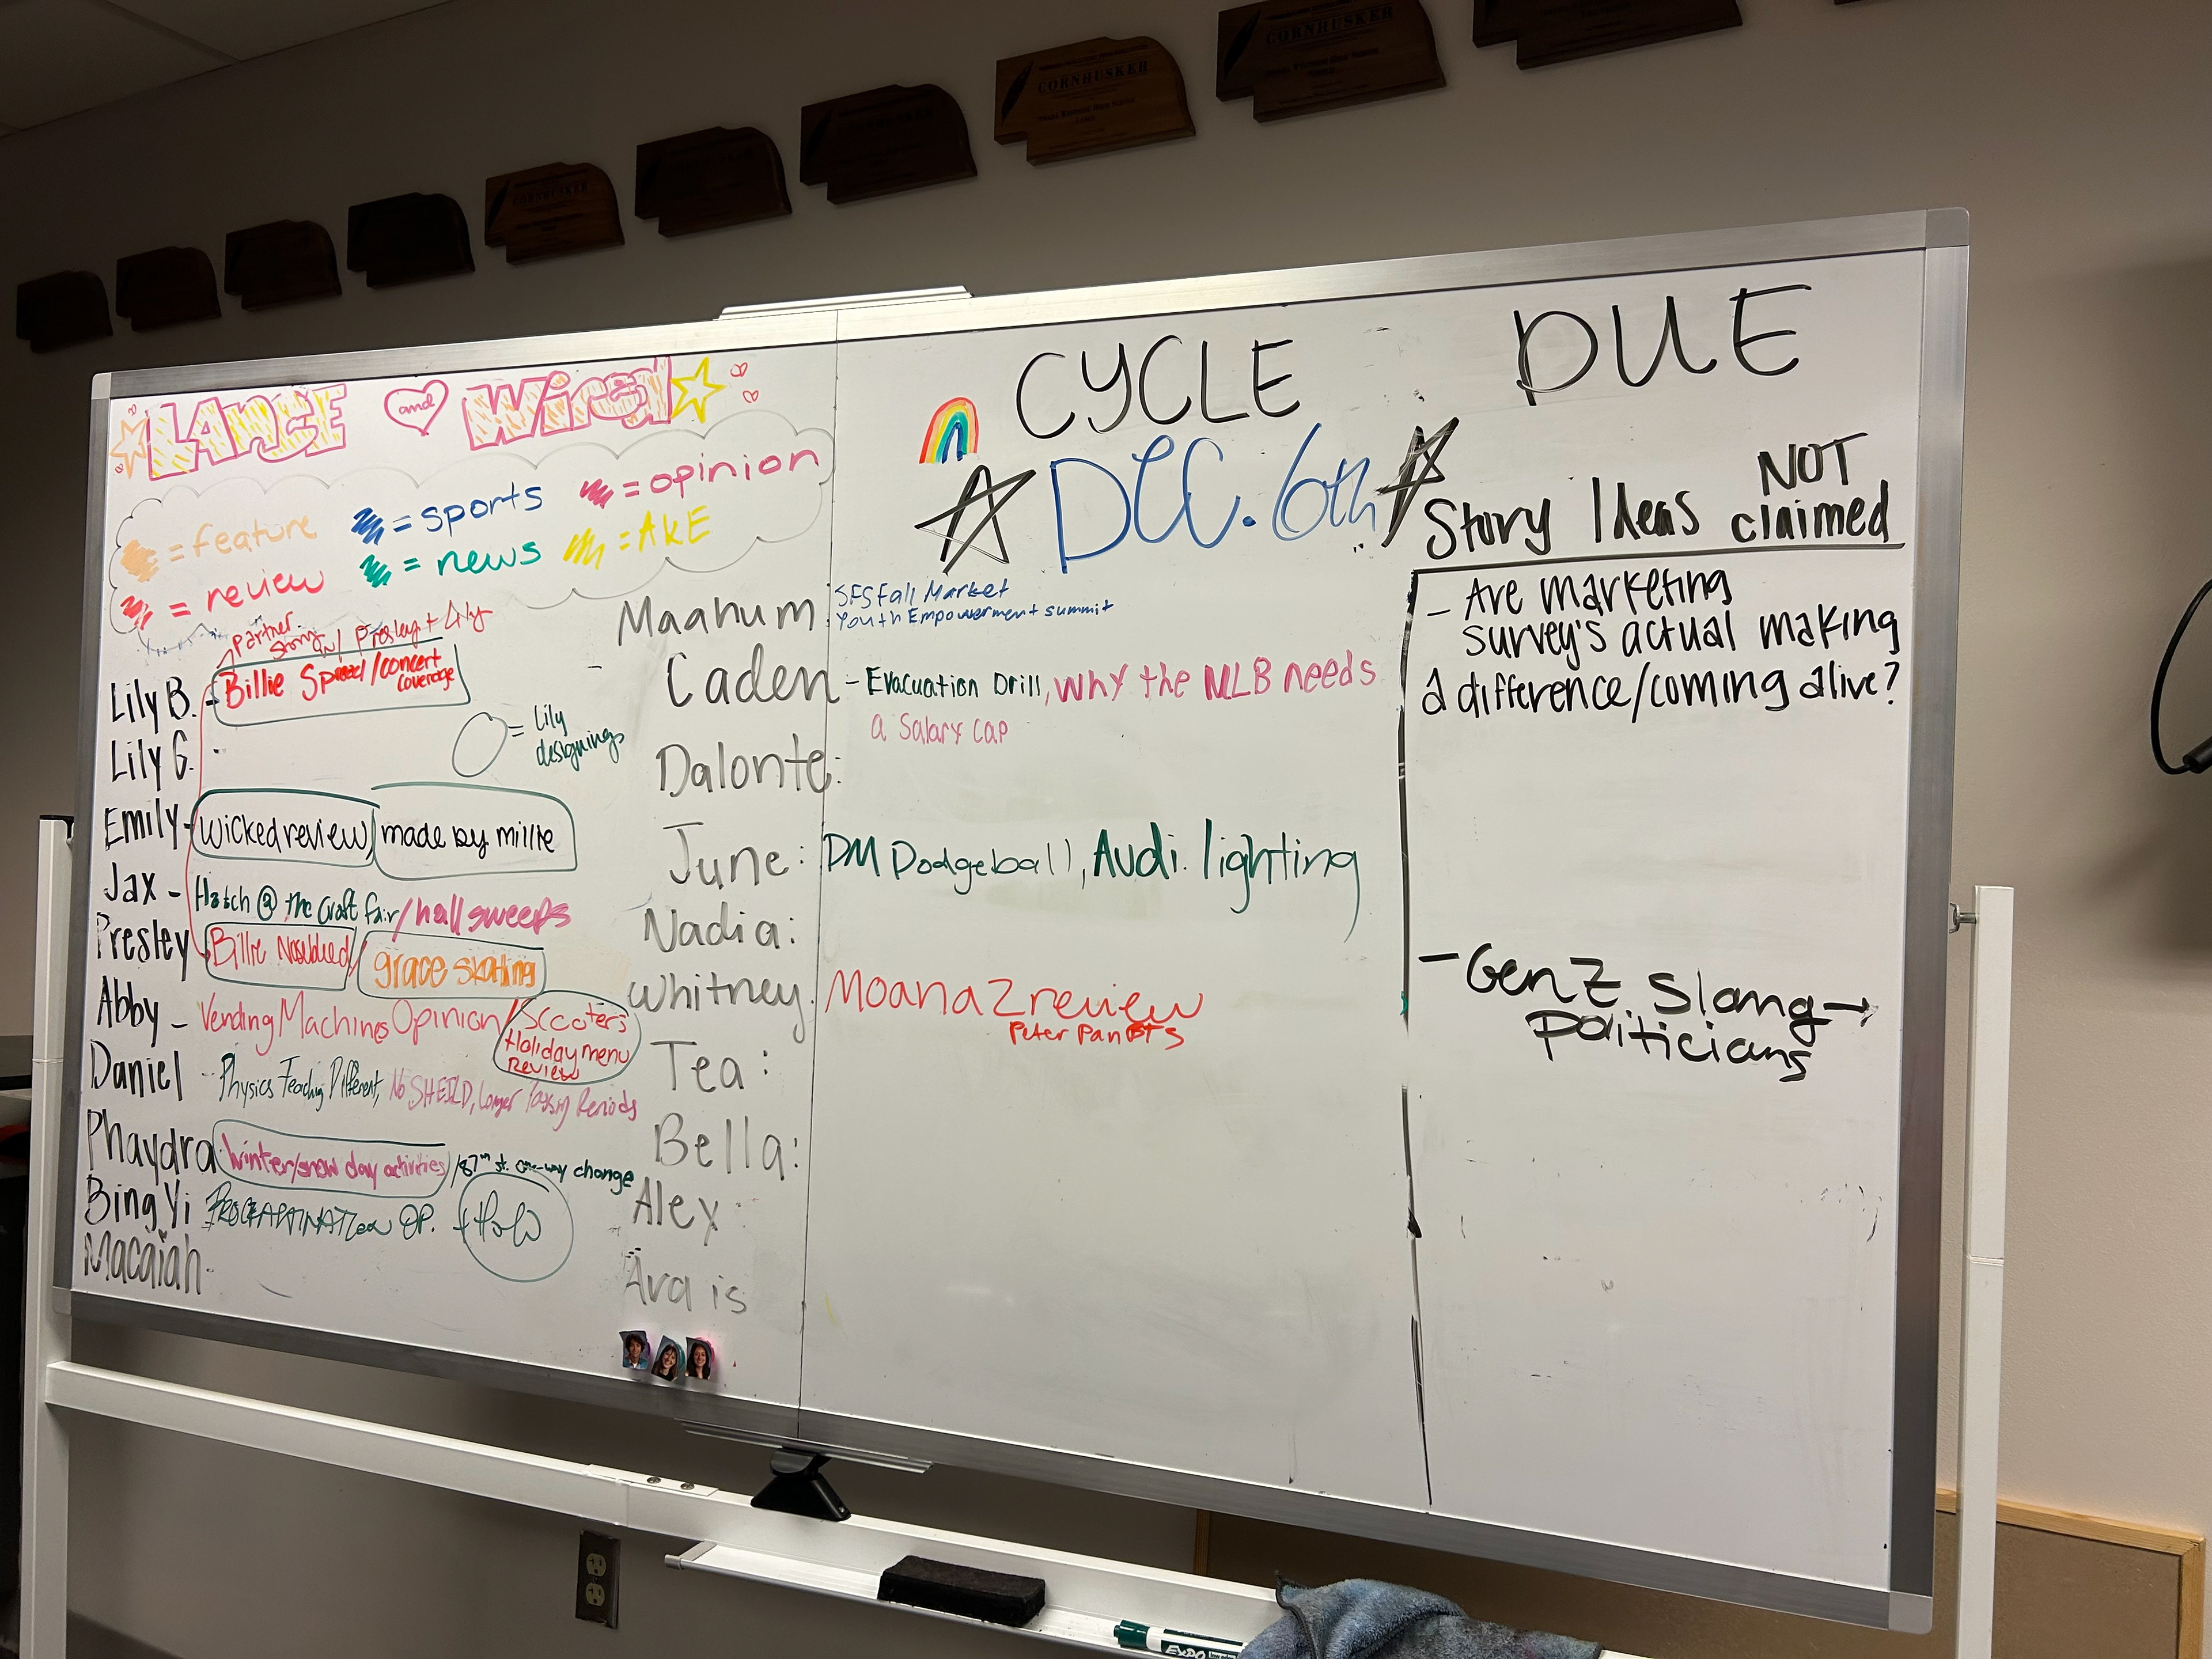 CORNHUSKER
CORNHUSKER
CORNHUSKER
LANCE and Wired
= feature
= sports
= opinion
= review
= news
= AKE
partner story w/ Presley + Lily
Lily B. - Billie Spread/concert coverage
Lily G. -
= Lily designing
Emily - wicked review made by millie
Jax - Hatch @ the Craft fair/hall sweeps
Presley Billie Nosebleed/ grace skating
Abby - Vending Machines Opinion/ Scooters Holiday menu Review
Daniel - Physics Teaching Different, No SHEILD, Longer Passing Periods
Phaydra winter/snow day activities /87th st. one-way change
Bing Yi PROCRASTINATION OP.
Macaiah
CYCLE DUE
DEC. 6th
Maahum: SFS Fall Market
Youth Empowerment summit
Caden - Evacuation Drill, why the MLB needs
a salary cap
Dalonte:
June: DM Dodgeball, Audi. lighting
Nadia:
Whitney: Moana 2 review
Peter Pan BTS
Tea:
Bella:
Alex
Ara is
NOT
Story Ideas claimed
- Are marketing
survey's actual making
a difference/coming alive?
- Gen Z Slang→
Politicians
EXPO